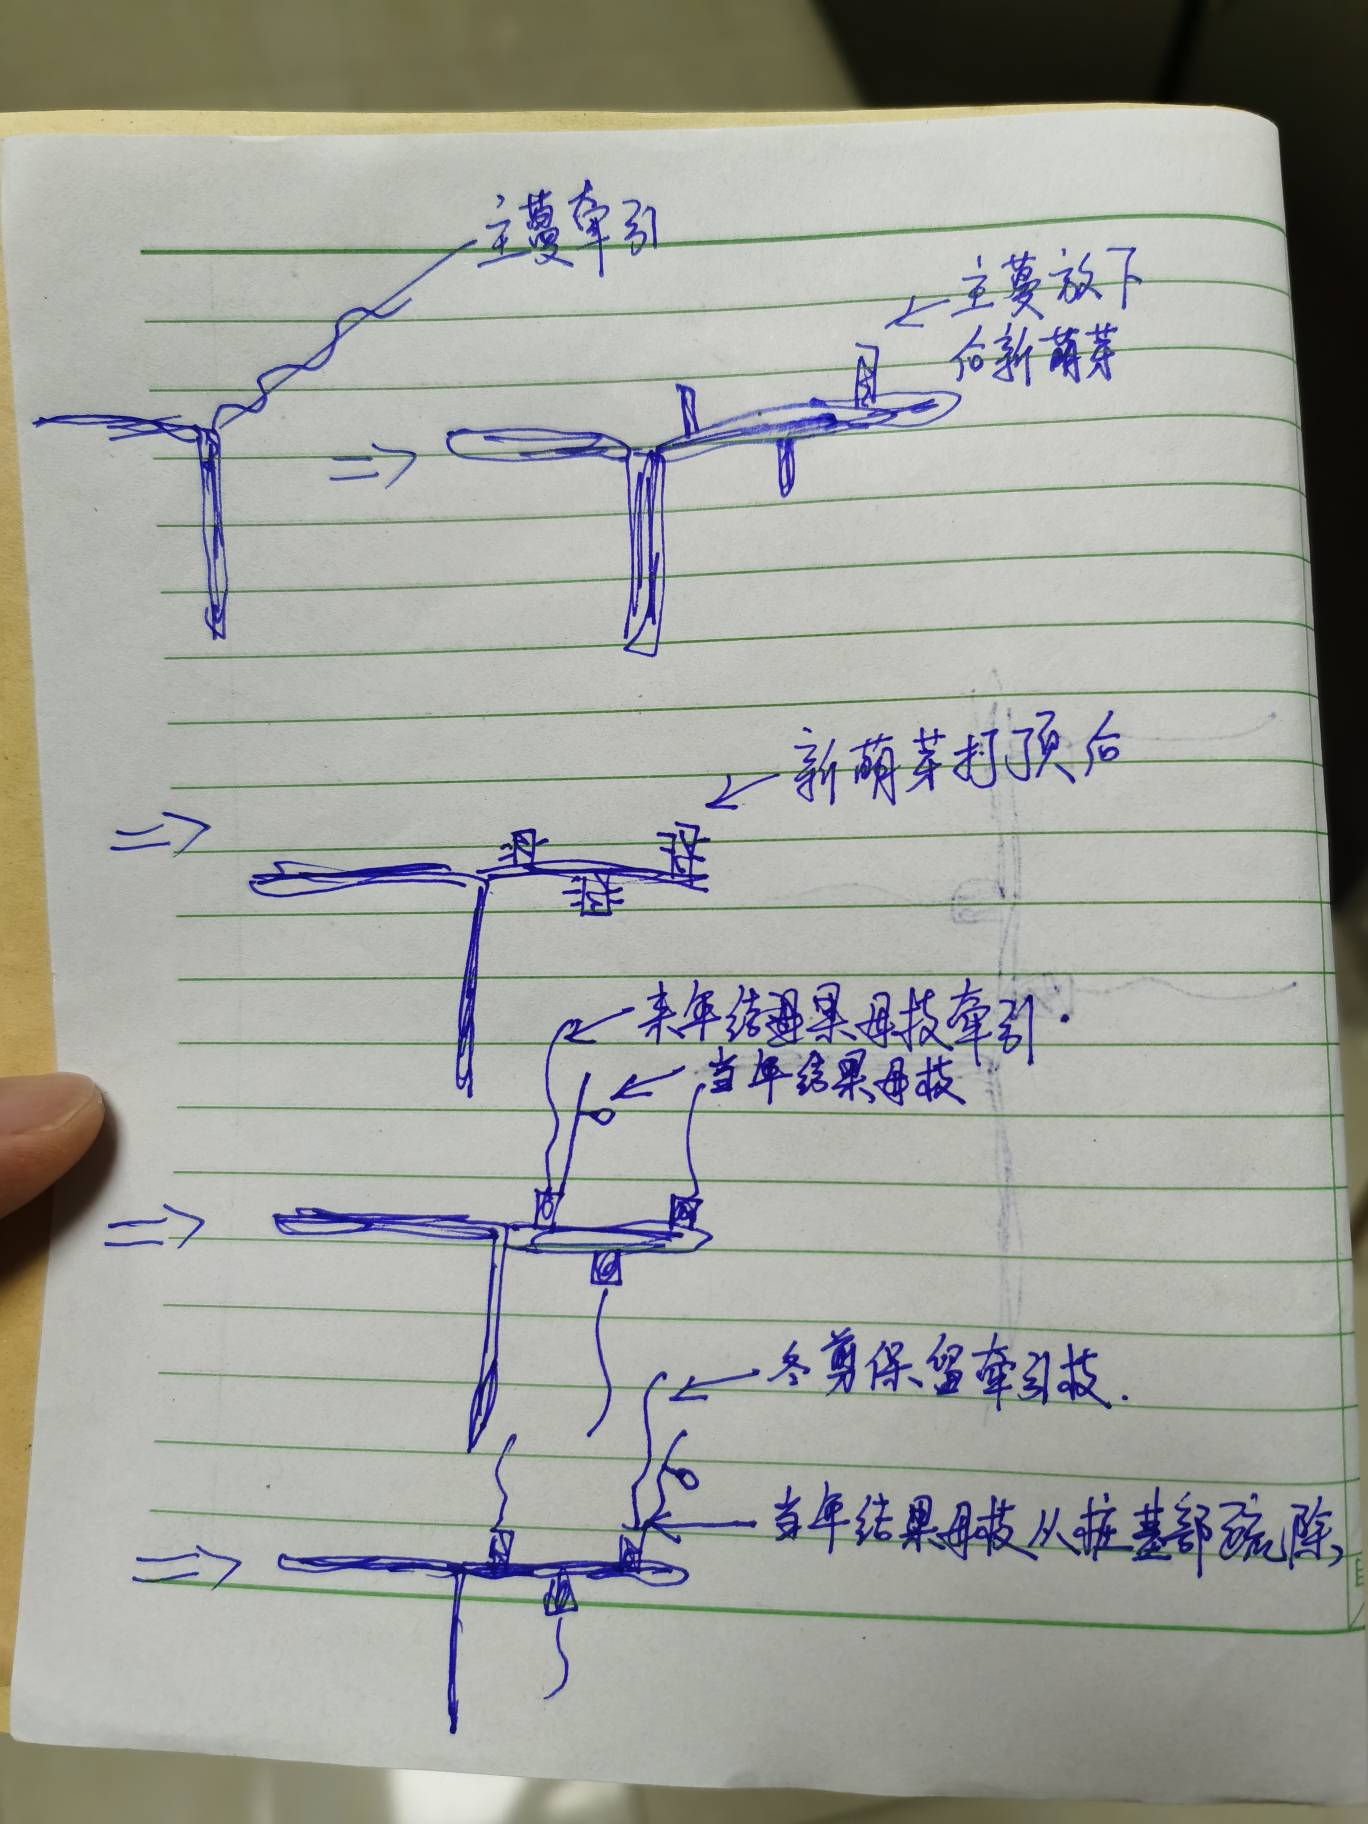 主蔓牵引
主蔓放下
后新萌芽
新萌芽打顶后
来年结果母枝牵引.
当年结果母枝
冬剪保留牵引枝.
当年结果母枝从桩基部疏除,